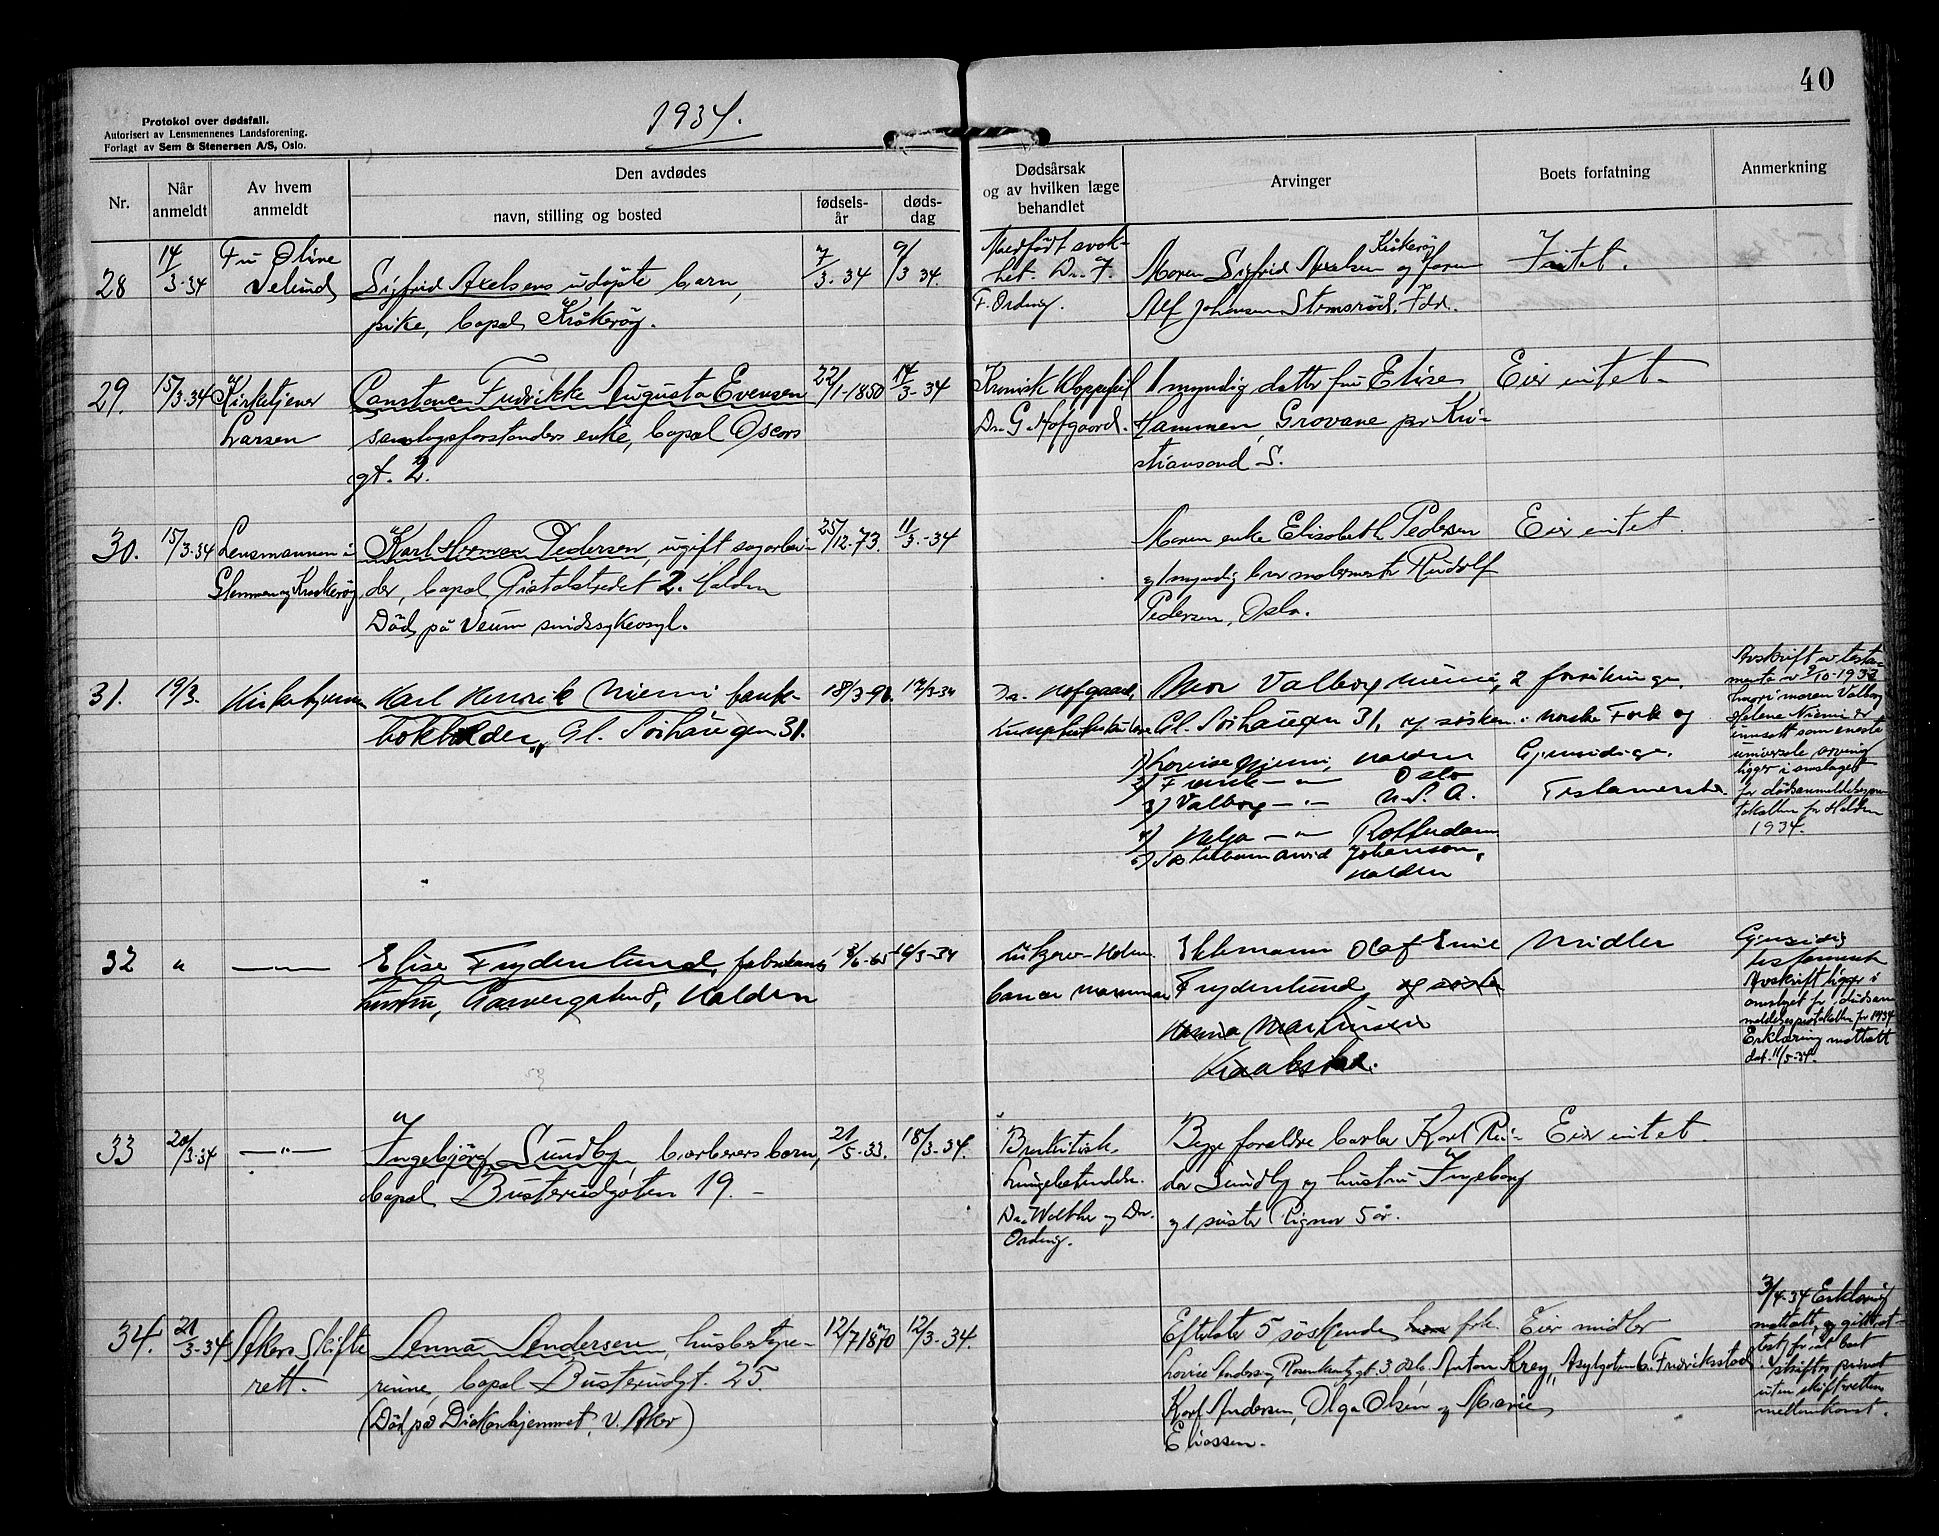 40
1934.
Protokol over dødsfall.
Autorisert av Lensmennenes Landsforening.
Forlagt av Sem & Stenersen A/S, Oslo.
Nr.
Når anmeldt
Av hvem anmeldt
Den avdødes
navn, stilling og bosted
fødselsår
dødsdag
Dødsårsak
og av hvilken læge
behandlet
Arvinger
Boets forfatning
Anmerkning
28 14/3-34 Fru Oline
Sigfrid Axelsens udøpte barn,
pike, bopæl Kråkerøy.
7/3-34 9/3 34.
Medfødt svak-
het. Dr. F.
F. Ording.
Moren Sigfrid Axelsen Kråkerøy og faren
Alf Johansen Strmsrød, Idd.
Intet.
29. 15/3-34 Kirketjener
Larsen
Constance Fredrikke Augusta Evensen
samlagsforstanders enke, bopæl Oscars
gt. 2.
22/1-1850 14/3-34
Kronisk Kloppefeil
Dr. G. Hofgaard.
1 myndig datter fru Elise
Hammen, Grovane pr. Kri-
stiansand S.
Eier intet.
30. 15/3-34 Lensmannen i
Glemmen og Kråkerøy
Karl Herman Pedersen, ugift sagarbei-
der, bopæl Pistolstredet 2. Halden
Død på Veum sindssykeasyl.
25/12-73. 11/3-34
Moren enke Elisabeth Pedersen
og 1 myndig bror malermester Rudolf
Pedersen, Oslo.
Eier intet.
31. 19/3. Kirketjeneren
Karl Henrik Niemi, bank-
bokholder, Gl. Sørhaugen 31.
18/3-96 17/3-34
Dr. Hofgaard,
Lungetuberkulose
Mor Valborg Niemi,
Gl. Sørhaugen 31, og søsken:
1) Lovise Niemi, Halden
2) Frank — " — Oslo
3) Valborg — " — U.S.A.
4) Helga — " — Rotterdam
5) Søsterbarn Arvid Johanson,
Halden
2 forsikringer
i Norske Folk og
Gjensidige.
Testamente.
Avskrift av testa-
mente av 9/10-1933
hvori moren Valborg
Helene Niemi er
innsatt som eneste
universale arving
ligger i omslaget
for dødsanmeldelsespro
tokollen for Halden
1934.
32 " — " —
Elise Frydenlund, fabrikants
hustru, Garvergaten 8, Halden
3/6-65 16/3-34
Ektemann Olaf Emil
Frydenlund, og søster
Hanna Martinsen
Midler
Gjensidig
testamente
Avskrift ligger i
omslaget for dødsan
meldelsesprotokollen for 1934
Erklæring mottatt
dat. 11/5-34.
33 20/3-34 — " —
Ingebjørg Sundby, barberers barn,
bopæl Busterudgaten 19. -
21/5-33. 18/3-34.
Bronkitisk
Lungebetendelse.
Dr. Wolthe og Dr.
Ording.
Begge foreldre barber Karl Rei-
dar Sundby og hustru Ingeborg
og 1 søster Rignor 5 år.
Eier intet.
34. 21/3-34 Akers Skifte
rett.
Anna Andersen, husbestyre-
rinne, bopæl Busterudgt. 25.
(Død på Diakonhjemmet, V. Aker)
12/7 1870 12/3-34.
Efterlater 5 søskende, frk.
Lovise Andersen, Rosenkrantzgt. 3 Oslo, Anton Krey, Asylgaten 6, Fredriksstad
Karl Andersen, Olga Olsen og Marie
Eliassen.
Eier midler
3/4-34 Erklæring
mottatt, og gitt at-
test for at boet
skiftes privat
uten skifterettens
mellemkomst.